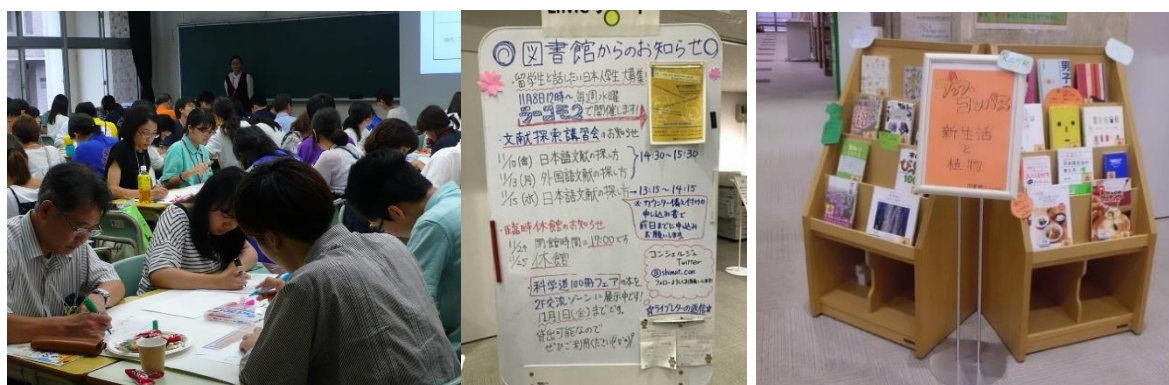 図書館からのお知らせ
・留学生と話したい日本人学生大募集!
11月8日17時〜毎週水曜
ラーコモ2で開催します!
文献探索講習会のお知らせ
11/10(金) 日本語文献の探し方
11/13(月) 外国語文献の探し方
14:30〜15:30
11/15(水) 日本語文献の探し方→13:15〜14:15
※カウンター備え付けの
申し込み書で
前日までに申し込み
お願いします
・臨時休館のお知らせ
11/24 閉館時間=19:00です
11/25 休館
コンシェルジュ
Twitter
・科学道100冊フェアの本を
2F交流ゾーンに展示中です!
12月1日(金)までです
貸出可能なので
ぜひご利用ください
☆ライブレターの返信☆
新生活
と
植物
男子